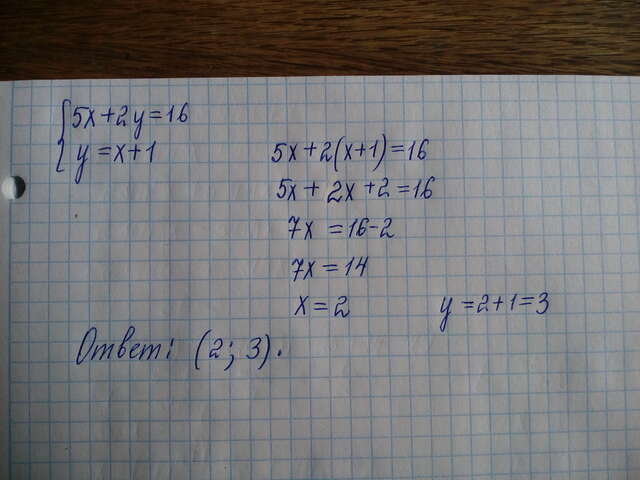 5x+2y=16
y=x+1
5x+2(x+1)=16
5x+2x+2=16
7x=16-2
7x=14
x=2 y=2+1=3
Ответ: (2; 3).